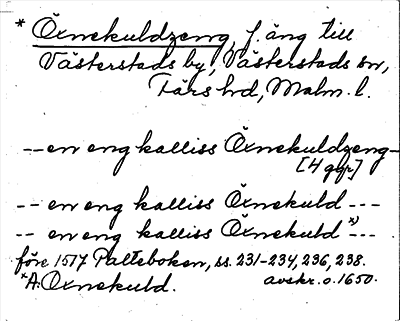 * Öxnekuldzeng, f. äng till
Västerstads by, Västerstads sn,
Färs hd, Malm. l.
-- en eng kalliss Öxnekuldzeng --
[4 ggr]
-- en eng kalliss Öxnekuld ---
-- en eng kalliss Öxnekuld x) ---
före 1517 Palteboken, ss. 231-234, 236, 238.
x A: Öxnekuld. avskr. o. 1650.